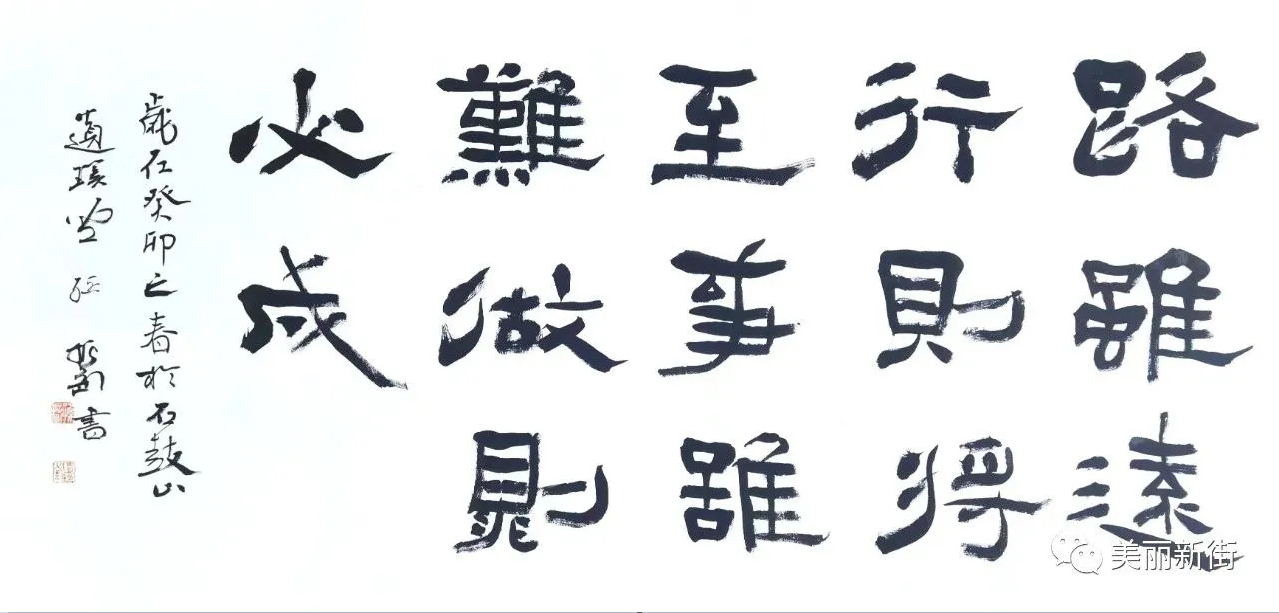 路雖遠
行則將
至事雖
難做則
必成
歲在癸卯之春於石鼓山
書
美丽新街